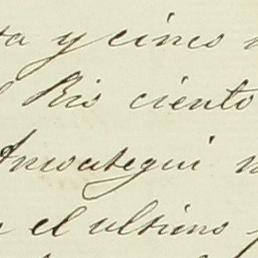 ta y cinco
Rio ciento
Amoategui
el ultimo